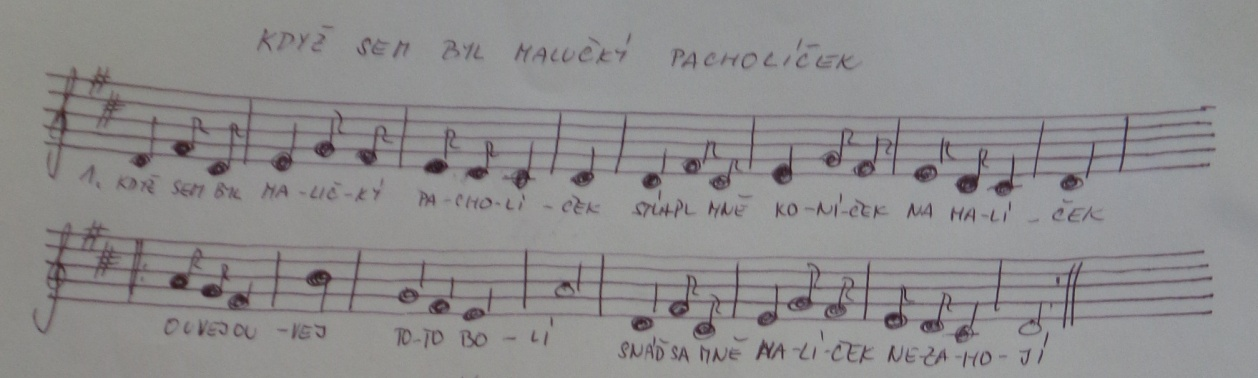 KDYŽ SEM BYL MALUČKÝ PACHOLÍČEK
1. KDYŽ SEM BYL MA-LIČ-KÝ PA-CHO-LÍ-ČEK ŠLÁPL MNĚ KO-NÍ-ČEK NA MA-LÍ-ČEK
OUVEJOU-VEJ TO-TO BO-LÍ SNÁĎ SA MNĚ MA-LÍ-ČEK NEZA-HO-JÍ